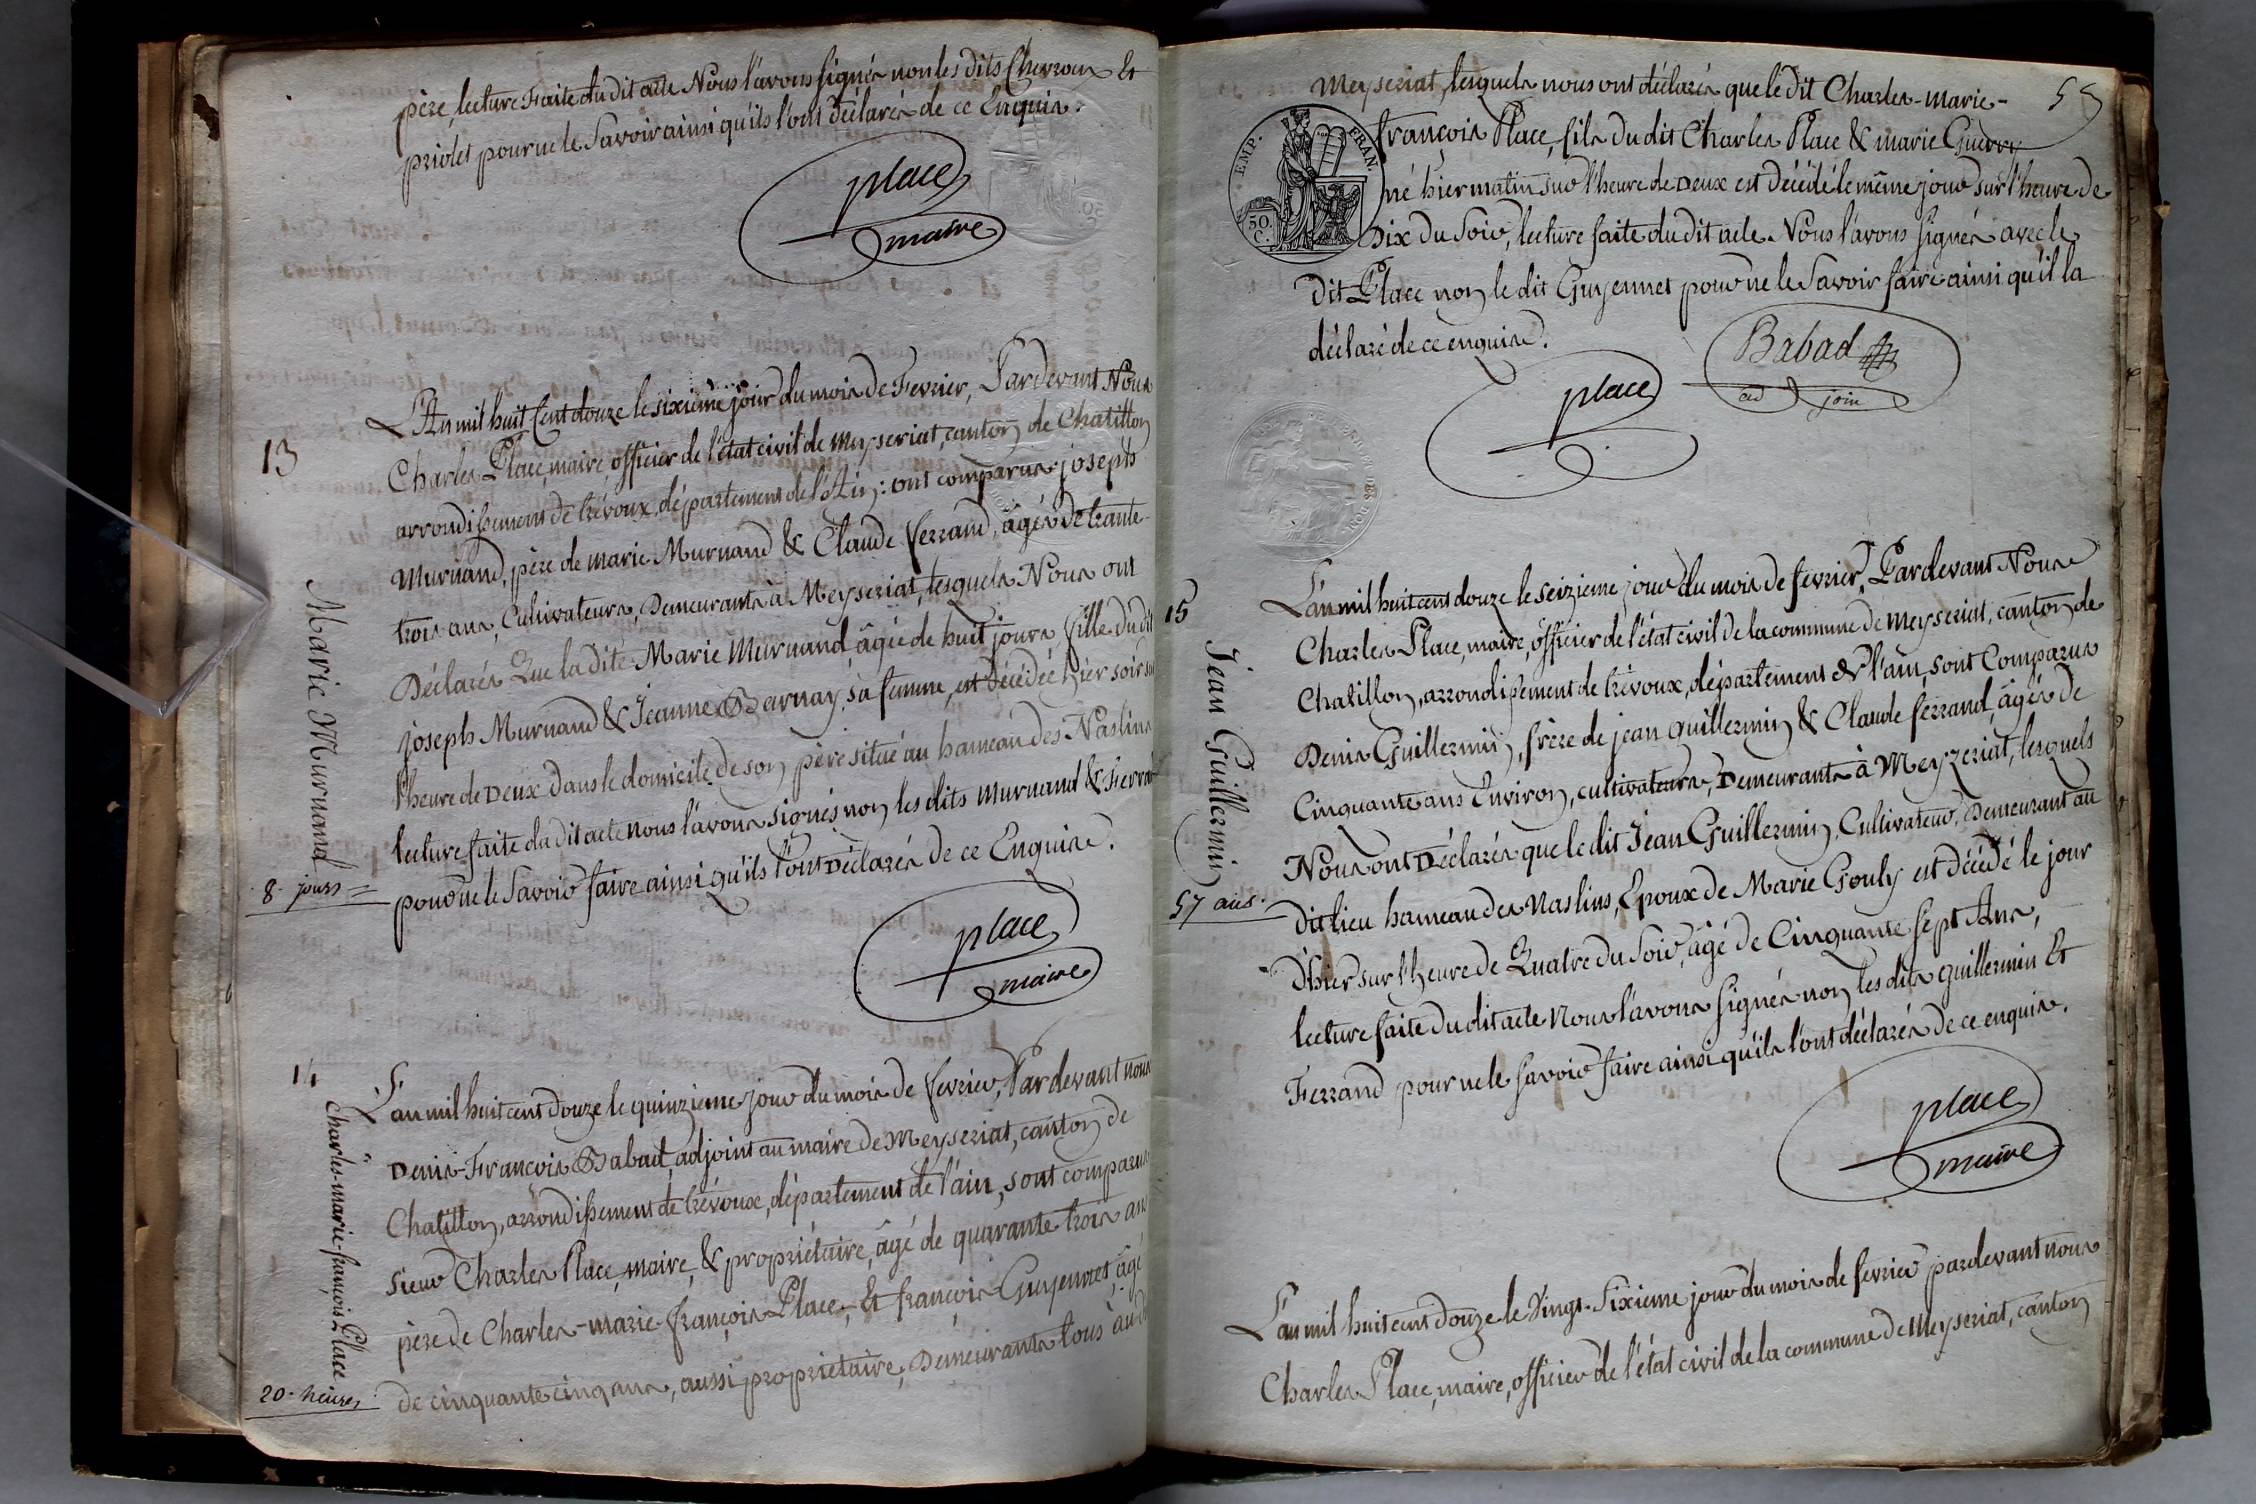 père, lecture Faite du dit acte Nous l'avons signés non les dits Chevron Et
priolet pour ne le Savoir ainsi qu'ils l'ont déclarés de ce Enquis.
place
maire
13
Marie Murnand
8 jours =
L'An mil huit Cent douze le sixieme jour du mois de Fevrier, Pardevant Nous
Charles Place, maire, officier de l'état civil de Meyseriat, canton de Chatillon
arrondissement de trévoux, département de l'Ain : ont comparus joseph
Murnand, père de marie Murnand & Claude ferrand, âgés de trante-
trois ans, Cultivateurs, Demeurants à Meyseriat, lesquels Nous ont
Déclarés Que la dite Marie Murnand, âgée de huit jours, fille du dit
joseph Murnand & Jeanne Bernay, sa femme, est décédée hier soir sur
l'heure de Deux dans le domicile de son père situé au hameau des Naslins
lecture faite du dit acte nous l'avons signés non les dits Murnand & Ferrand
pour ne le Savoir faire ainsi qu'ils l'ont Déclarés de ce Enquise.
place
maire
14
Charles-marie-françois Place
20 heures
L'an mil huit cent douze le quinzieme jour du mois de fevrier, Pardevant nous
Denis-François Babad, adjoint au maire de Meyseriat, canton de
Chatillon, arrondissement de trévoux, département de l'ain, sont comparus
sieur Charles Place, maire, & propriétaire, âgé de quarante trois ans
père de Charles-marie-françois Place, Et françois Guyennet âgé
de cinquante cinq ans, aussi propriétaire, Demeurants tous au dit
55
Meyseriat, lesquels nous ont déclarés que le dit Charles-marie-
françois Place, fils du dit Charles Place & marie Guerry
EMP. FRAN.
50 C.
né hier matin sur l'heure de Deux est Décédé le même jour sur l'heure de
Dix du Soir, lecture faite du dit acte Nous l'avons signés avec le
dit Place non le dit Guyennet pour ne le Savoir faire ainsi qu'il la
déclaré de ce enquise.
Babad
adjoin
place
15
Jean Guillermin
57 ans.
L'an mil huit cent douze le seizieme jour du mois de fevrier, Pardevant Nous
Charles Place, maire, officier de l'état civil de la commune de Meyseriat, canton de
Chatillon, arrondissement de trévoux, département de l'ain, sont Comparus
Denis Guillermin, frère de jean guillermin & Claude ferrand, âgés de
Cinquante ans Environ, cultivateurs, Demeurants à Meyzeriat, lesquels
Nous ont Déclarés que le dit Jean Guillermin, Cultivateur, Demeurant au
dit lieu hameau des Naslins, Epoux de Marie Gouly est décédé le jour
d'hier sur l'heure de Quatre du Soir, âgé de Cinquante sept Ans,
lecture faite du dit acte Nous l'avons signés non les dits guillermin Et
Ferrand pour ne le savoir faire ainsi qu'ils l'ont déclarés de ce enquis.
place
maire
L'an mil huit cent douze le Vingt-Sixieme jour du mois de fevrier pardevant nous
Charles Place, maire, officier de l'état civil de la commune de Meyseriat, canton